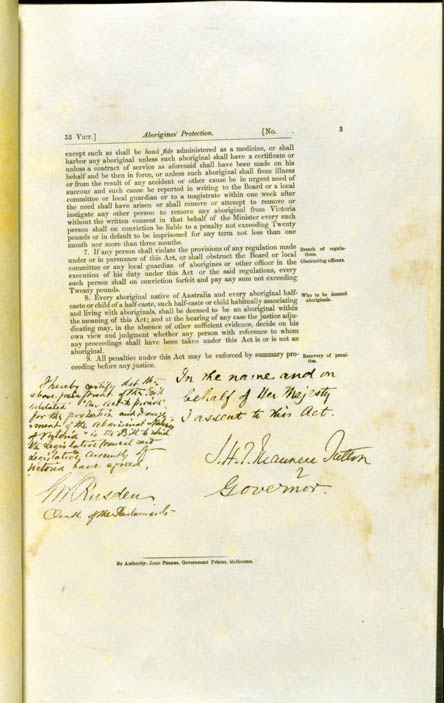 33 VICT.] Aborigines' Protection. [No. 3
except such as shall be bonâ fide administered as a medicine, or shall
harbor any aboriginal unless such aboriginal shall have a certificate or
unless a contract of service as aforesaid shall have been made on his
behalf and be then in force, or unless such aboriginal shall from illness
or from the result of any accident or other cause be in urgent need of
succour and such cause be reported in writing to the Board or a local
committee or local guardian or to a magistrate within one week after
the need shall have arisen or shall remove or attempt to remove or
instigate any other person to remove any aboriginal from Victoria
without the written consent in that behalf of the Minister every such
person shall on conviction be liable to a penalty not exceeding Twenty
pounds or in default to be imprisoned for any term not less than one
month nor more than three months.
7. If any person shall violate the provisions of any regulation made
under or in pursuance of this Act, or shall obstruct the Board or local
committee or any local guardian of aborigines or other officer in the
execution of his duty under this Act or the said regulations, every
such person shall on conviction forfeit and pay any sum not exceeding
Twenty pounds.
Breach of regula-
tions.
Obstructing officers.
8. Every aboriginal native of Australia and every aboriginal half-
caste or child of a half-caste, such half-caste or child habitually associating
and living with aboriginals, shall be deemed to be an aboriginal within
the meaning of this Act; and at the hearing of any case the justice adju-
dicating may, in the absence of other sufficient evidence, decide on his
own view and judgment whether any person with reference to whom
any proceedings shall have been taken under this Act is or is not an
aboriginal.
Who to be deemed
aboriginals.
9. All penalties under this Act may be enforced by summary pro-
ceeding before any justice.
Recovery of penal-
ties.
I hereby certify that the
above fair print of the Bill
intituled "An Act to provide
for the protection and manage-
ment of the Aboriginal natives
of Victoria" is the Bill to which
the Legislative Council and
Legislative Assembly of
Victoria have agreed.
G W Rusden
Clerk of the Parliaments
In the name and on
behalf of Her Majesty
I assent to this Act.
J. H. T. Manners Sutton
Governor.
By Authority: JOHN FERRES, Government Printer, Melbourne.